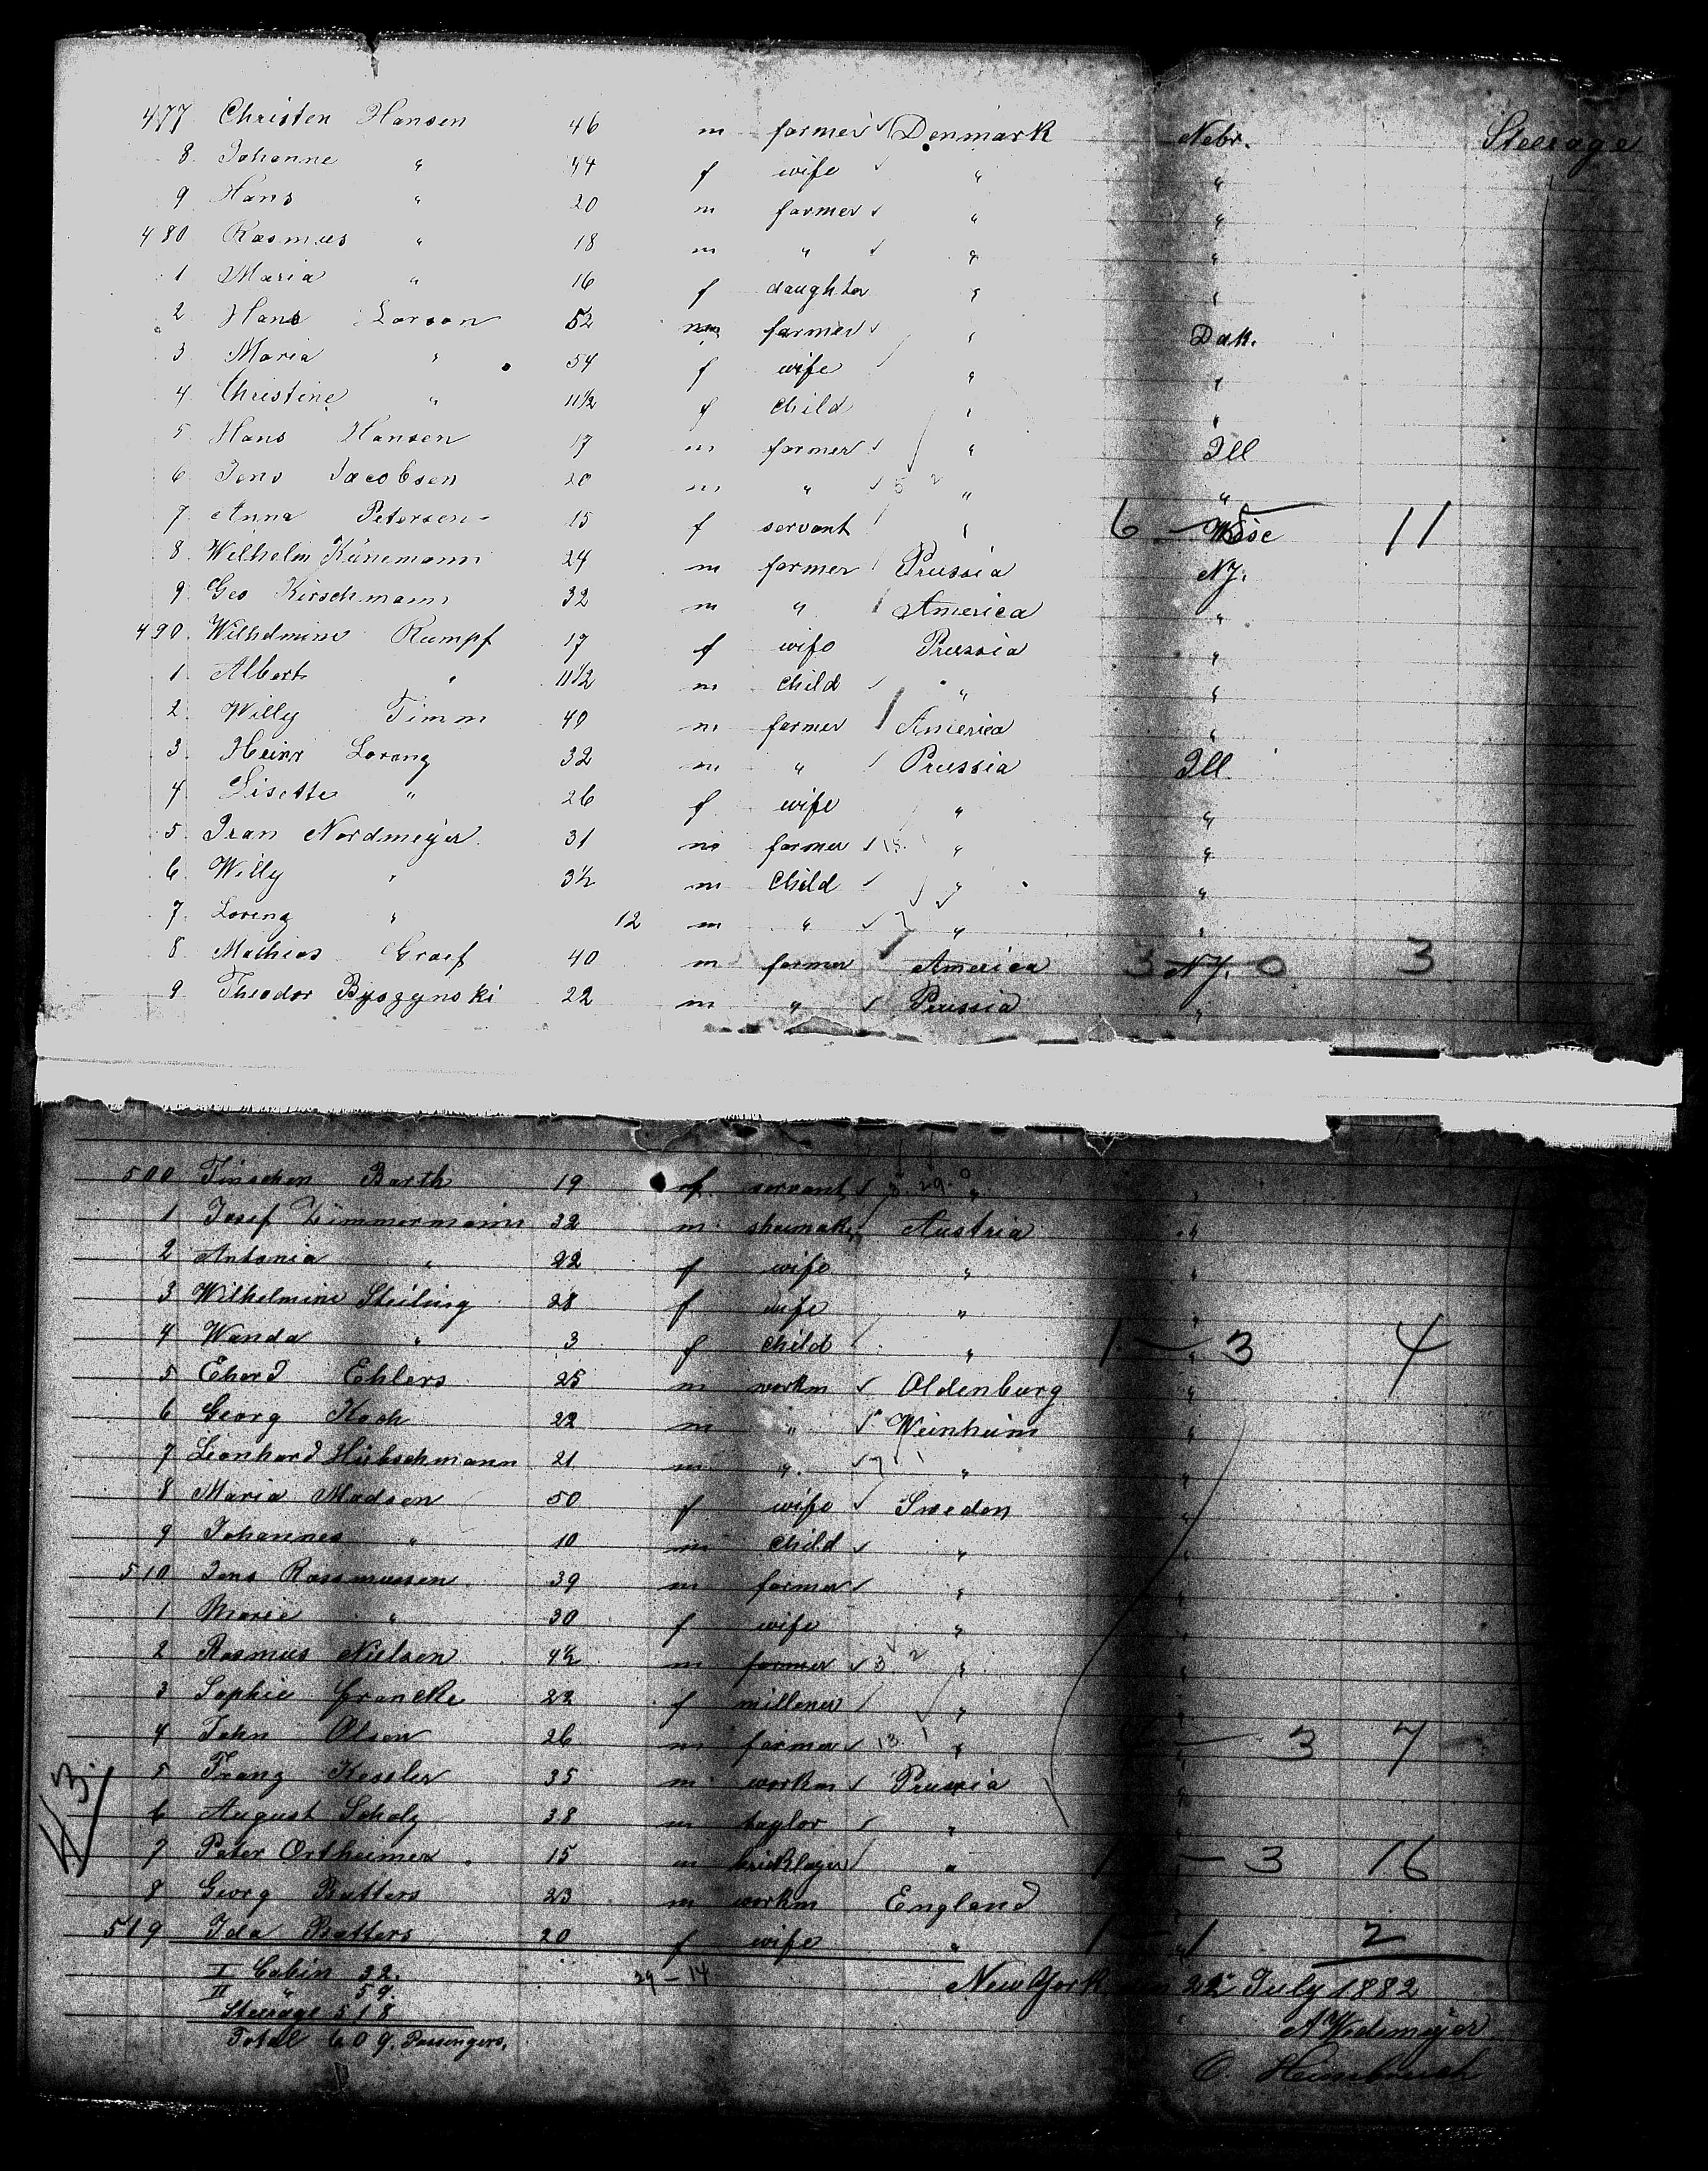 477 Christen Hansen 46 m farmer Denmark Nebr. Steerage
8 Johanne " 44 f wife " "
9 Hans " 20 m farmer " "
480 Rasmus " 18 m " " "
1 Maria " 16 f daughter " "
2 Hans Larson 52 m farmer " Dak.
3 Maria " 54 f wife " "
4 Christine " 11 1/2 f child " "
5 Hans Hansen 17 m farmer " Ill
6 Jens Jacobsen 20 m " " "
7 Anna Petersen 15 f servant " 6 - 5 Wisc 11
8 Wilhelm Künemann 24 m farmer Prussia NJ.
9 Geo Kirschmann 32 m " America "
490 Wilhelmine Rumpf 17 f wife Prussia "
1 Albert " 11 1/2 m child " "
2 Willy Timm 40 m farmer America "
3 Heinr Lorenz 32 m " Prussia Ill
4 Lisette " 26 f wife " "
5 Fran Nordmeyer 31 m farmer " "
6 Willy " 3 1/2 m child " "
7 Lorenz " 12 m " " "
8 Mathias Graef 40 m farmer America 3 NJ. 0 3
9 Theodor Byszynski 22 m " Prussia "
500 Tinschen Barth 19 f servant " "
1 Josef Zimmermann 32 m shoemak Austria "
2 Antonia " 22 f wife " "
3 Wilhelmine Steiling 28 f wife " "
4 Wanda " 3 f child " 1 - 3 4
5 Ehard Ehlers 25 m workm Oldenburg "
6 Georg Koch 22 m " Weinheim "
7 Leonhard Hübschmann 21 m " " "
8 Maria Madsen 50 f wife Sweden "
9 Johannes " 10 m child " "
510 Jens Rassmussen 39 m farmer " "
1 Marie " 30 f wife " "
2 Rasmus Nielsen 42 m farmer " "
3 Sophie Francke 22 f millener " "
4 John Olsen 26 m farmer " 3 7
5 Franz Kessler 35 m workm Prussia "
6 August Scholz 38 m taylor " "
7 Peter Ortheimer 15 m bricklayer " - 3 16
8 Georg Batters 23 m workm England
519 Ida Batters 20 f wife " 1 - 1 2
I Cabin 32. 29 - 14 New York 22 July 1882
II " 59.
Steerage 518 A Wedemeyer
Total 609. Passengers.